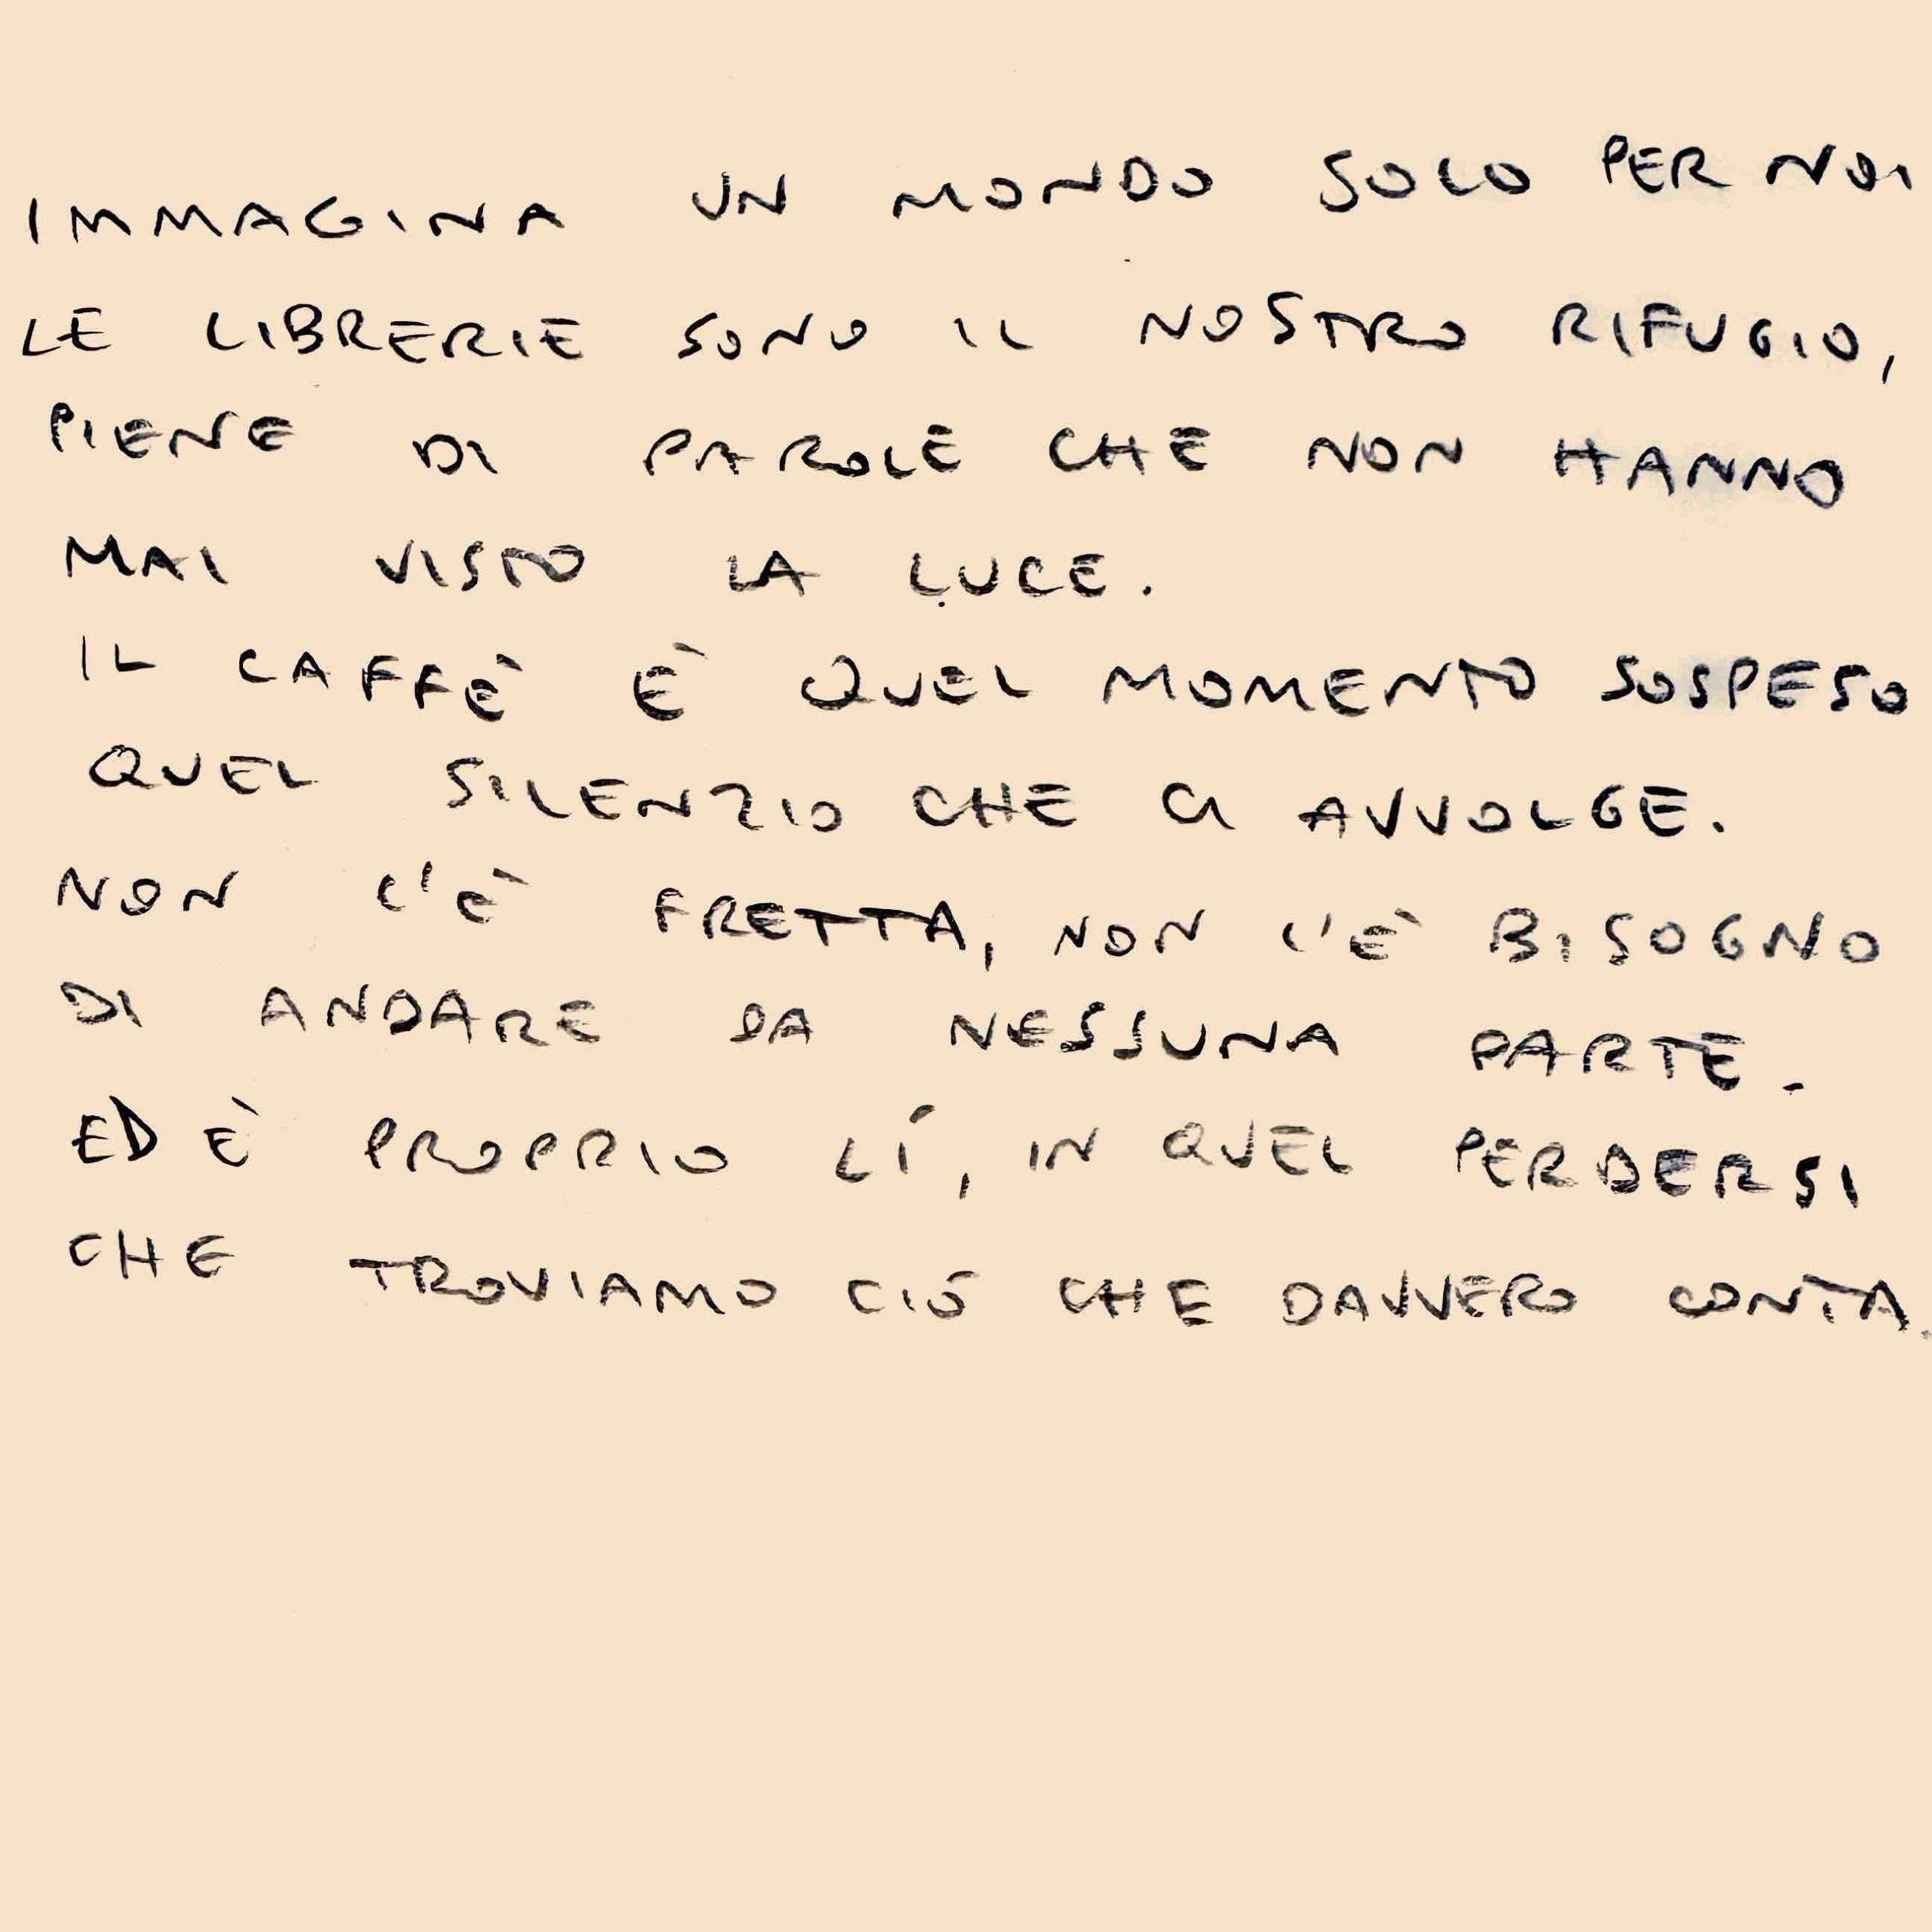 IMMAGINA UN MONDO SOLO PER NOI
LE LIBRERIE SONO IL NOSTRO RIFUGIO,
PIENE DI PAROLE CHE NON HANNO
MAI VISTO LA LUCE.
IL CAFFÈ È QUEL MOMENTO SOSPESO
QUEL SILENZIO CHE CI AVVOLGE.
NON C'È FRETTA, NON C'È BISOGNO
DI ANDARE DA NESSUNA PARTE.
ED È PROPRIO LÍ, IN QUEL PERDERSI
CHE TROVIAMO CIÓ CHE DAVVERO CONTA.